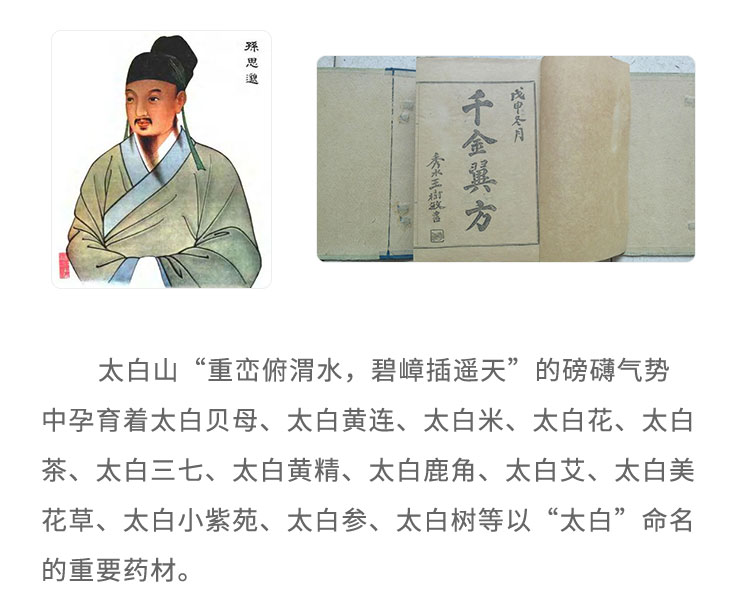 孫思邈
戊申冬月
千金翼方
秀水王樹敏書
太白山“重峦俯渭水，碧嶂插遥天”的磅礴气势
中孕育着太白贝母、太白黄连、太白米、太白花、太白
茶、太白三七、太白黄精、太白鹿角、太白艾、太白美
花草、太白小紫苑、太白参、太白树等以“太白”命名
的重要药材。